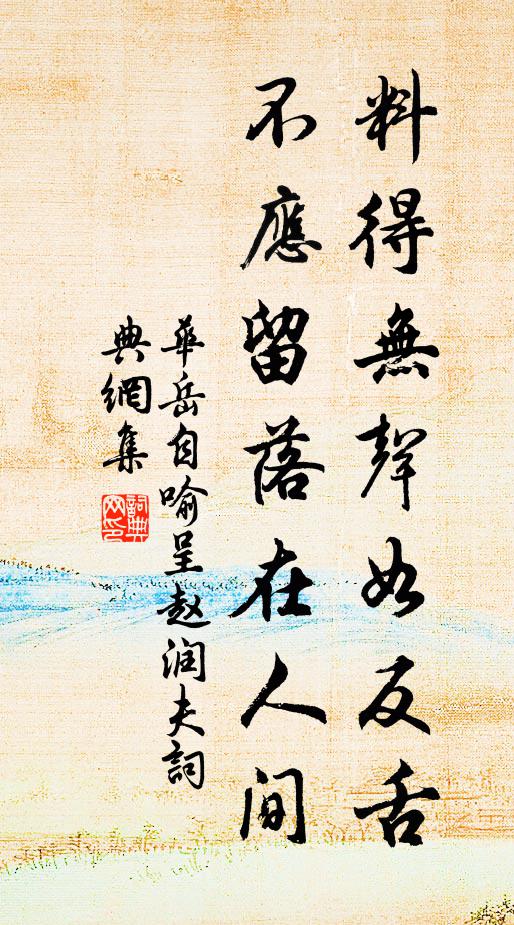 料得無聲如反舌
不應留落在人间
華岳自喻呈赵润夫詞
典網集
詞典
网印